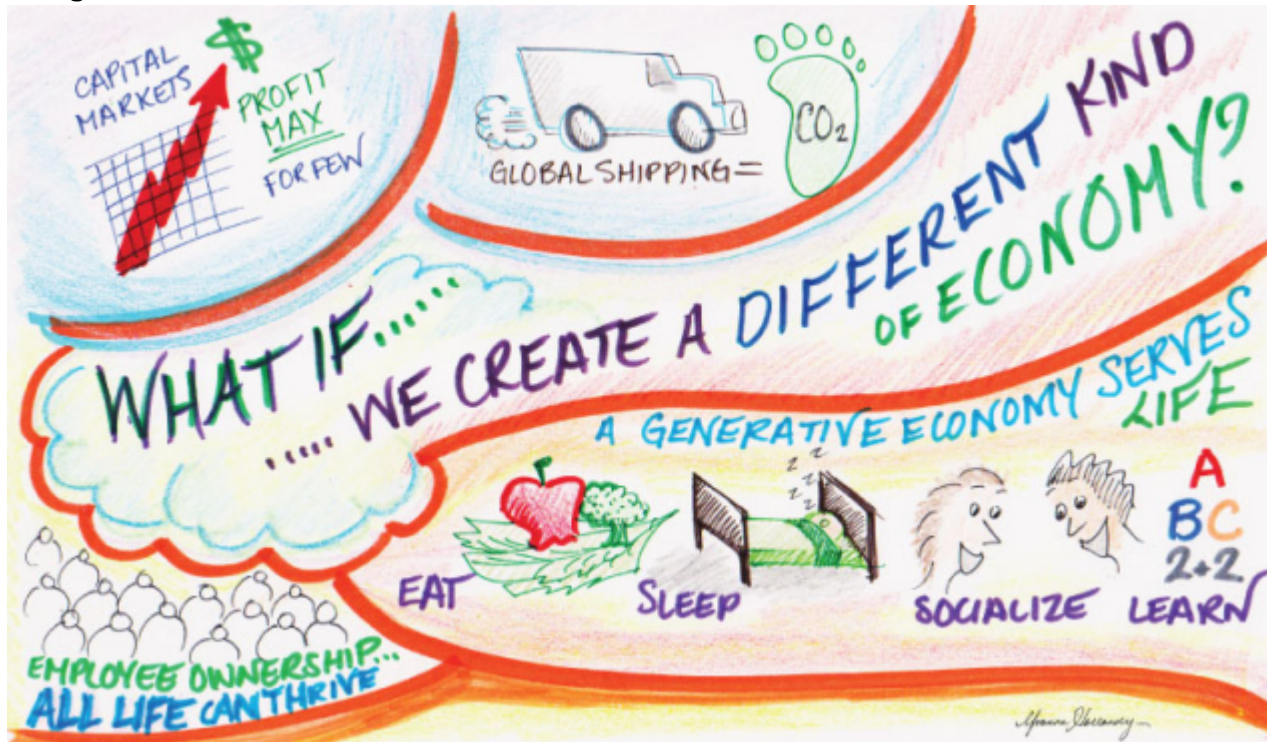 CAPITAL
MARKETS
$
PROFIT
MAX
FOR FEW
GLOBAL SHIPPING =
CO2
WHAT IF.....
..... WE CREATE A DIFFERENT KIND
OF ECONOMY?
A GENERATIVE ECONOMY SERVES
LIFE
z z z z z
EAT
SLEEP
SOCIALIZE
A
B C
2+2
LEARN
EMPLOYEE OWNERSHIP...
ALL LIFE CAN THRIVE